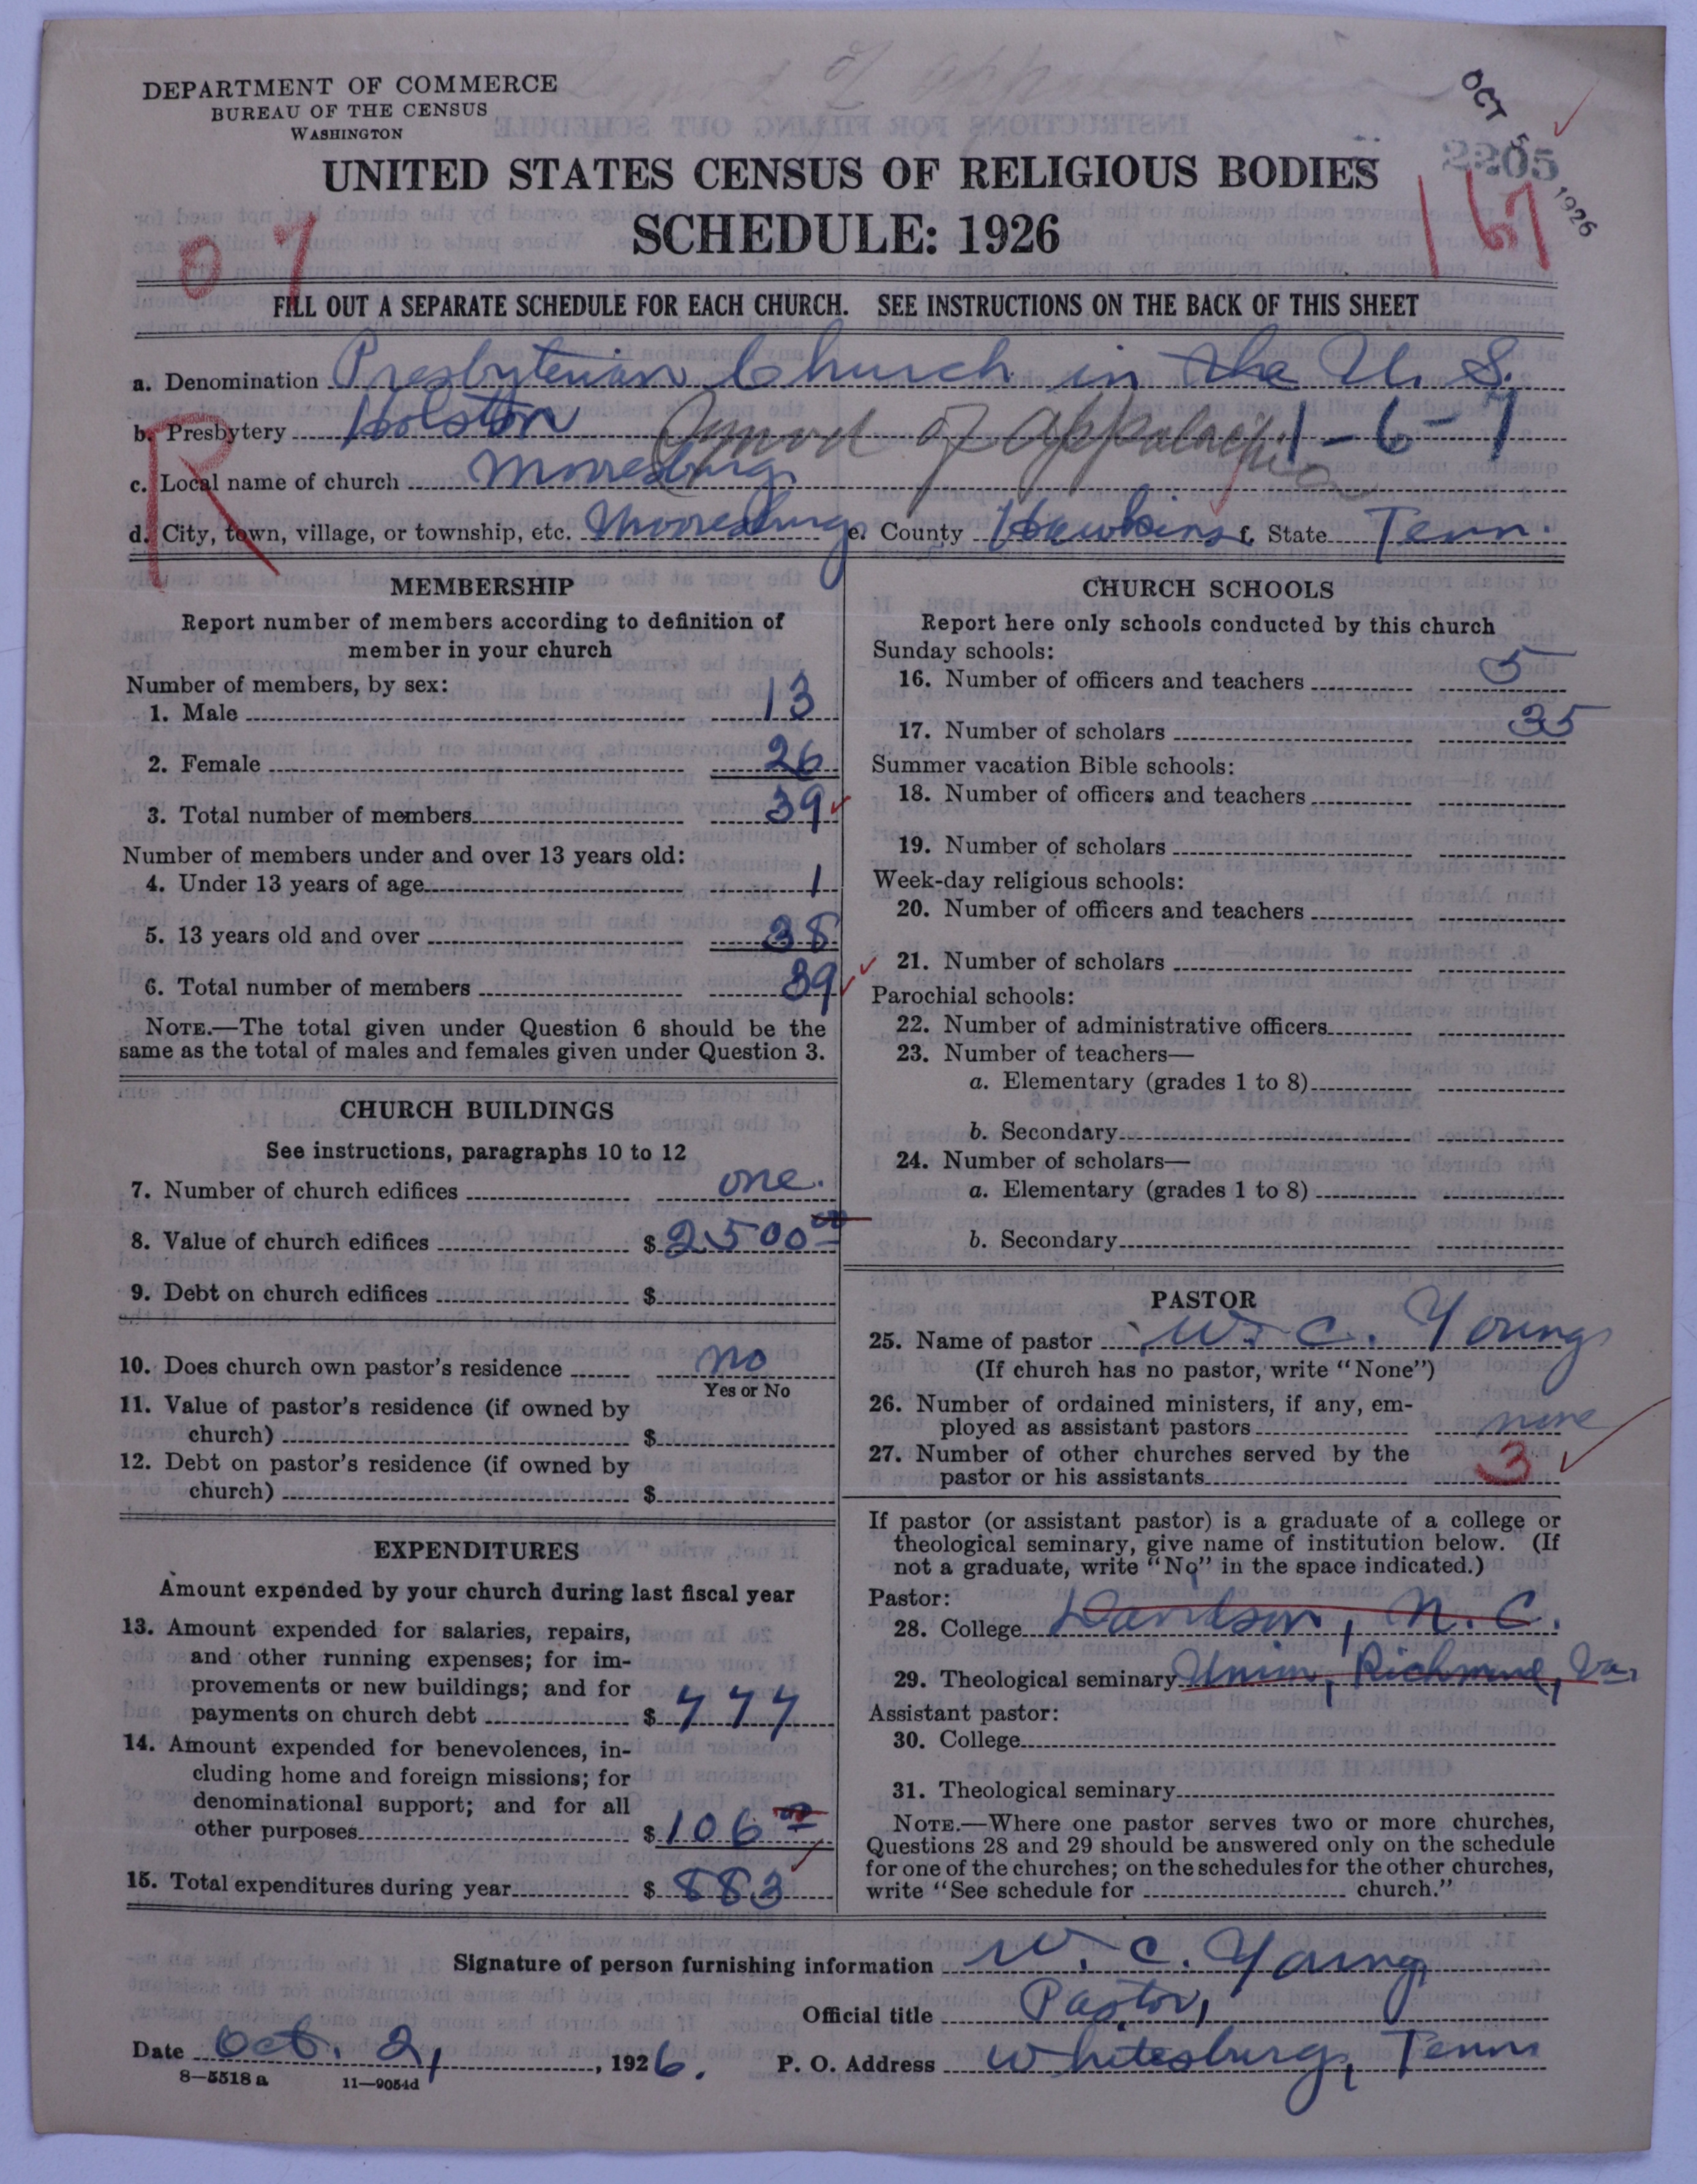 DEPARTMENT OF COMMERCE
BUREAU OF THE CENSUS
WASHINGTON
OCT 5 1926
2205
UNITED STATES CENSUS OF RELIGIOUS BODIES
SCHEDULE: 1926
07
167
FILL OUT A SEPARATE SCHEDULE FOR EACH CHURCH. SEE INSTRUCTIONS ON THE BACK OF THIS SHEET
a. Denomination Presbyterian Church in the U. S.
b. Presbytery Holston Synod of Appalachia 1-6-7
c. Local name of church Mooresburg
R
d. City, town, village, or township, etc. Mooresburg e. County Hawkins f. State Tenn.
MEMBERSHIP
Report number of members according to definition of
member in your church
Number of members, by sex:
1. Male 13
2. Female 26
3. Total number of members 39
Number of members under and over 13 years old:
4. Under 13 years of age 1
5. 13 years old and over 38
6. Total number of members 39
NOTE.—The total given under Question 6 should be the
same as the total of males and females given under Question 3.
CHURCH BUILDINGS
See instructions, paragraphs 10 to 12
7. Number of church edifices one.
8. Value of church edifices $ 2500 00
9. Debt on church edifices $
10. Does church own pastor's residence no
Yes or No
11. Value of pastor's residence (if owned by
church) $
12. Debt on pastor's residence (if owned by
church) $
EXPENDITURES
Amount expended by your church during last fiscal year
13. Amount expended for salaries, repairs,
and other running expenses; for im-
provements or new buildings; and for
payments on church debt $ 777
14. Amount expended for benevolences, in-
cluding home and foreign missions; for
denominational support; and for all
other purposes $ 106 00
15. Total expenditures during year $ 883
CHURCH SCHOOLS
Report here only schools conducted by this church
Sunday schools:
16. Number of officers and teachers 5
17. Number of scholars 35
Summer vacation Bible schools:
18. Number of officers and teachers
19. Number of scholars
Week-day religious schools:
20. Number of officers and teachers
21. Number of scholars
Parochial schools:
22. Number of administrative officers
23. Number of teachers—
a. Elementary (grades 1 to 8)
b. Secondary
24. Number of scholars—
a. Elementary (grades 1 to 8)
b. Secondary
PASTOR
25. Name of pastor W. C. Young
(If church has no pastor, write "None")
26. Number of ordained ministers, if any, em-
ployed as assistant pastors none
27. Number of other churches served by the
pastor or his assistants 3
If pastor (or assistant pastor) is a graduate of a college or
theological seminary, give name of institution below. (If
not a graduate, write "No" in the space indicated.)
Pastor:
28. College Davidson, N. C.
29. Theological seminary Union, Richmond, Va.
Assistant pastor:
30. College
31. Theological seminary
NOTE.—Where one pastor serves two or more churches,
Questions 28 and 29 should be answered only on the schedule
for one of the churches; on the schedules for the other churches,
write "See schedule for church."
Signature of person furnishing information W. C. Young
Official title Pastor,
Date Oct. 2, , 1926. P. O. Address Whitesburg, Tenn
8—5518 a 11—9054d